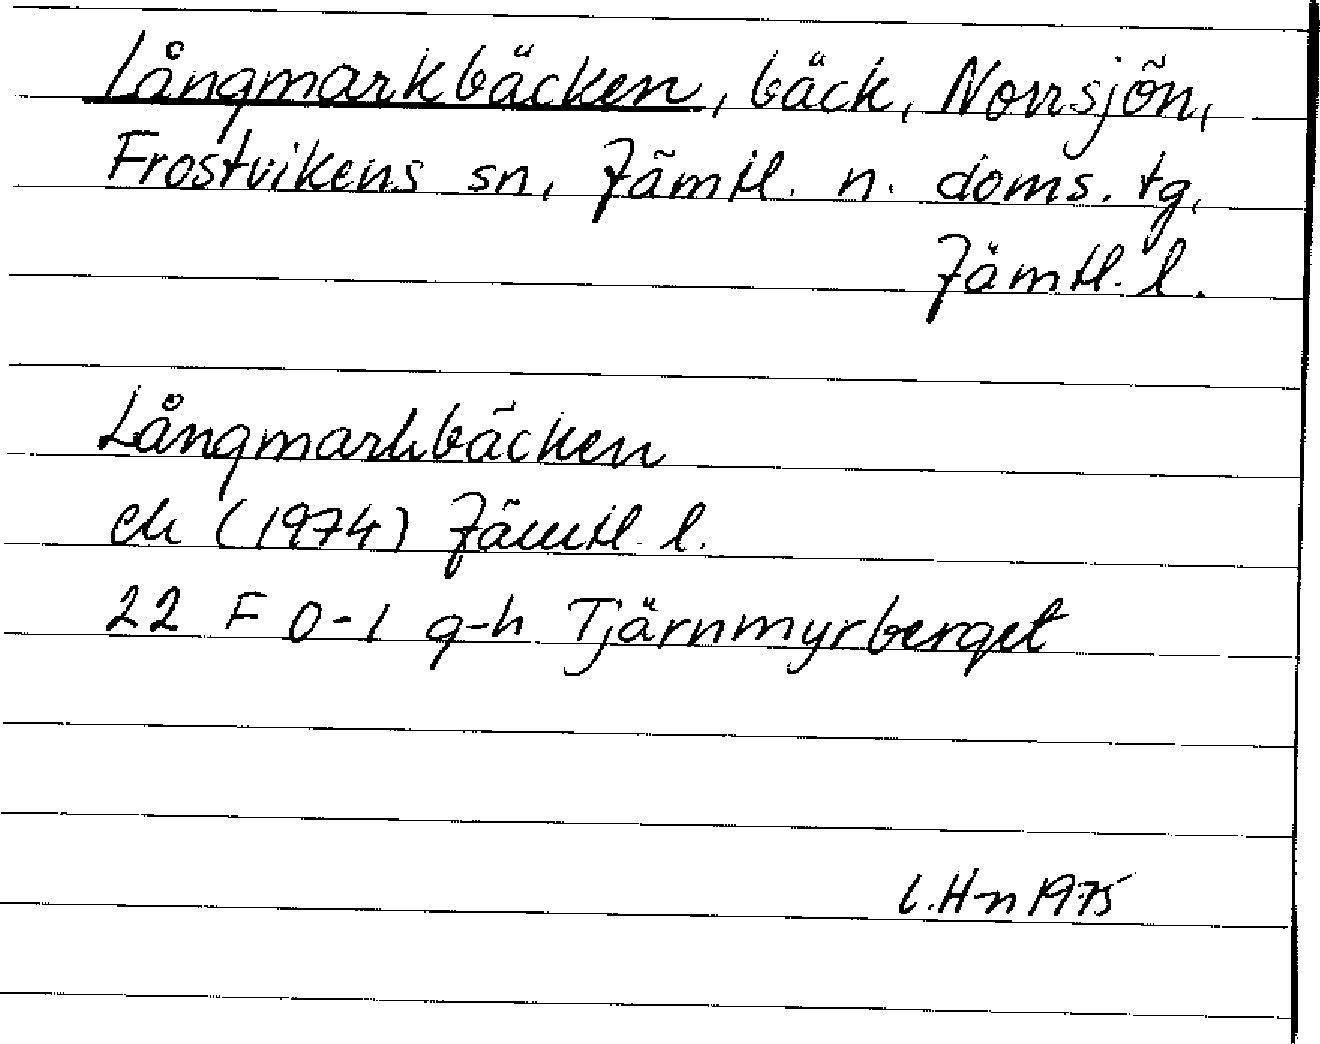 Långmarkbäcken, bäck, Norrsjön,
Frostvikens sn, Jämtl. n. doms. tg,
Jämtl. l.
Långmarkbäcken
ek (1974) Jämtl. l.
22 F 0-1 g-h Tjärnmyrberget
L. H-n 1975